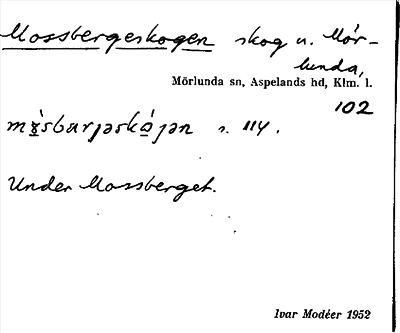 Mossbergeskogen skog u. Mör-
lunda,
Mörlunda sn, Aspelands hd, Klm. l.
102
s. 114.
Under Mossberget.
Ivar Modéer 1952